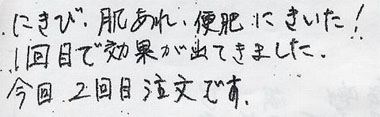 にきび、肌あれ、便肥にきいた!
1回目で効果が出てきました.
今回 2回目注文です.